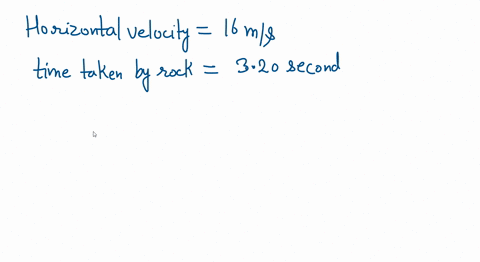 Horizontal velocity = 16 m/s
time taken by rock = 3.20 second